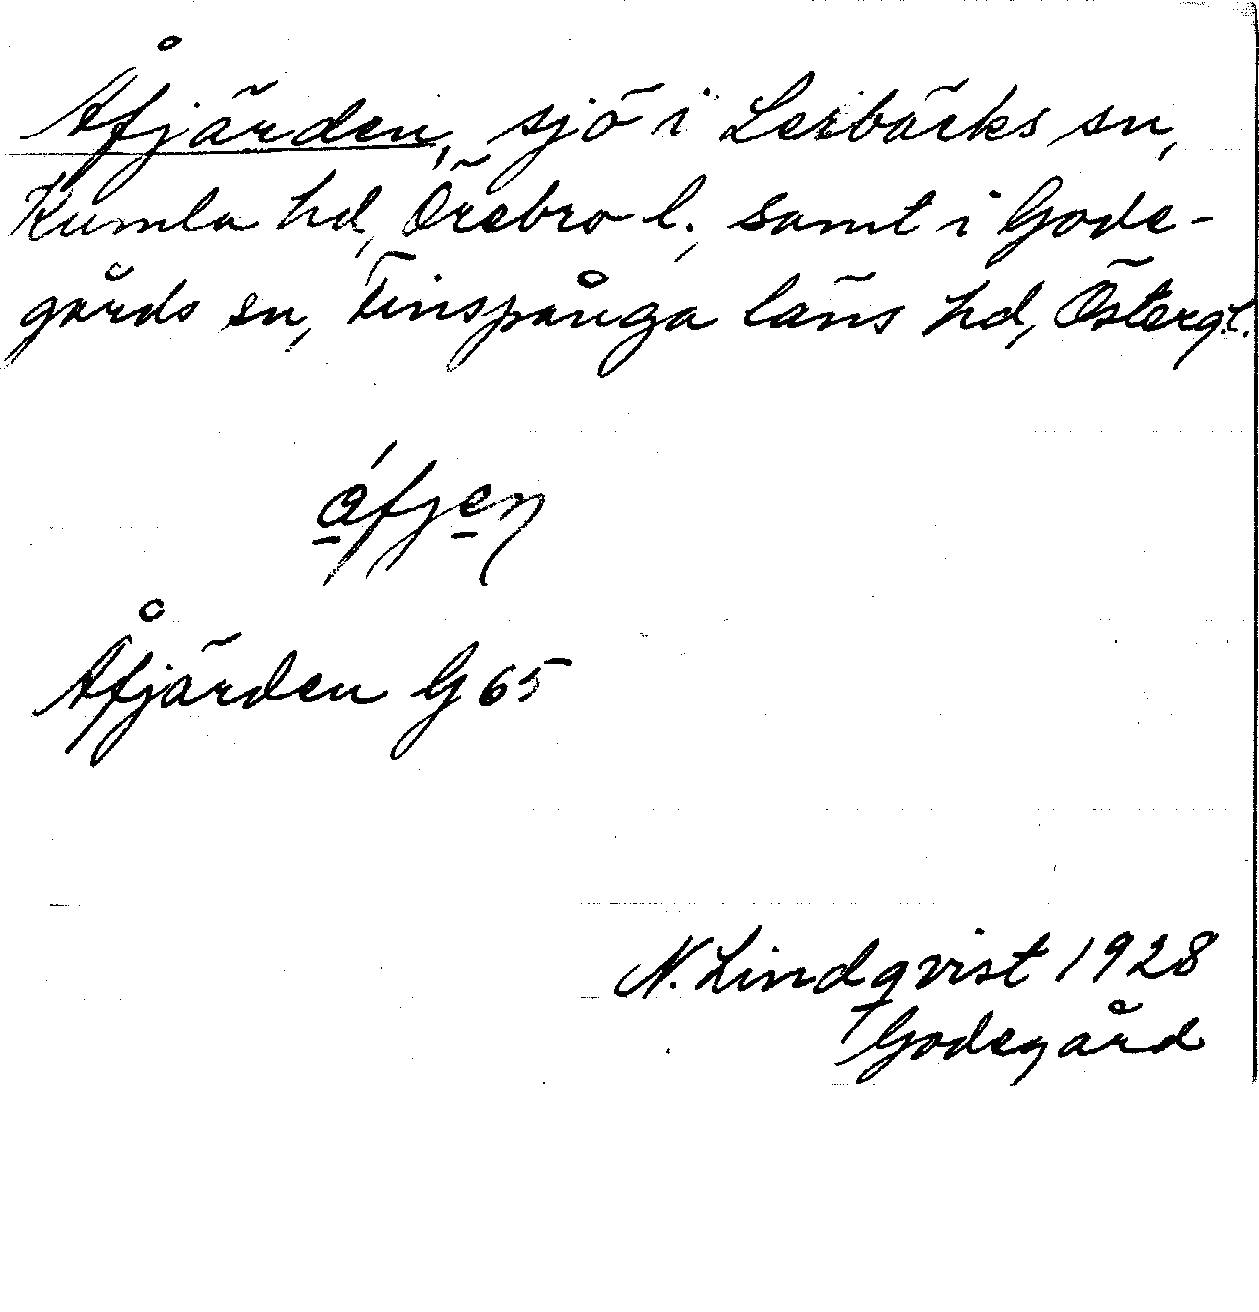 Åfjärden, sjö i Lerbäcks sn,
Kumla hd, Örebro l., samt i Gode-
gårds sn, Finspånga läns hd, Österg.l.
Åfjärden G 65
N. Lindqvist 1928
Godegård